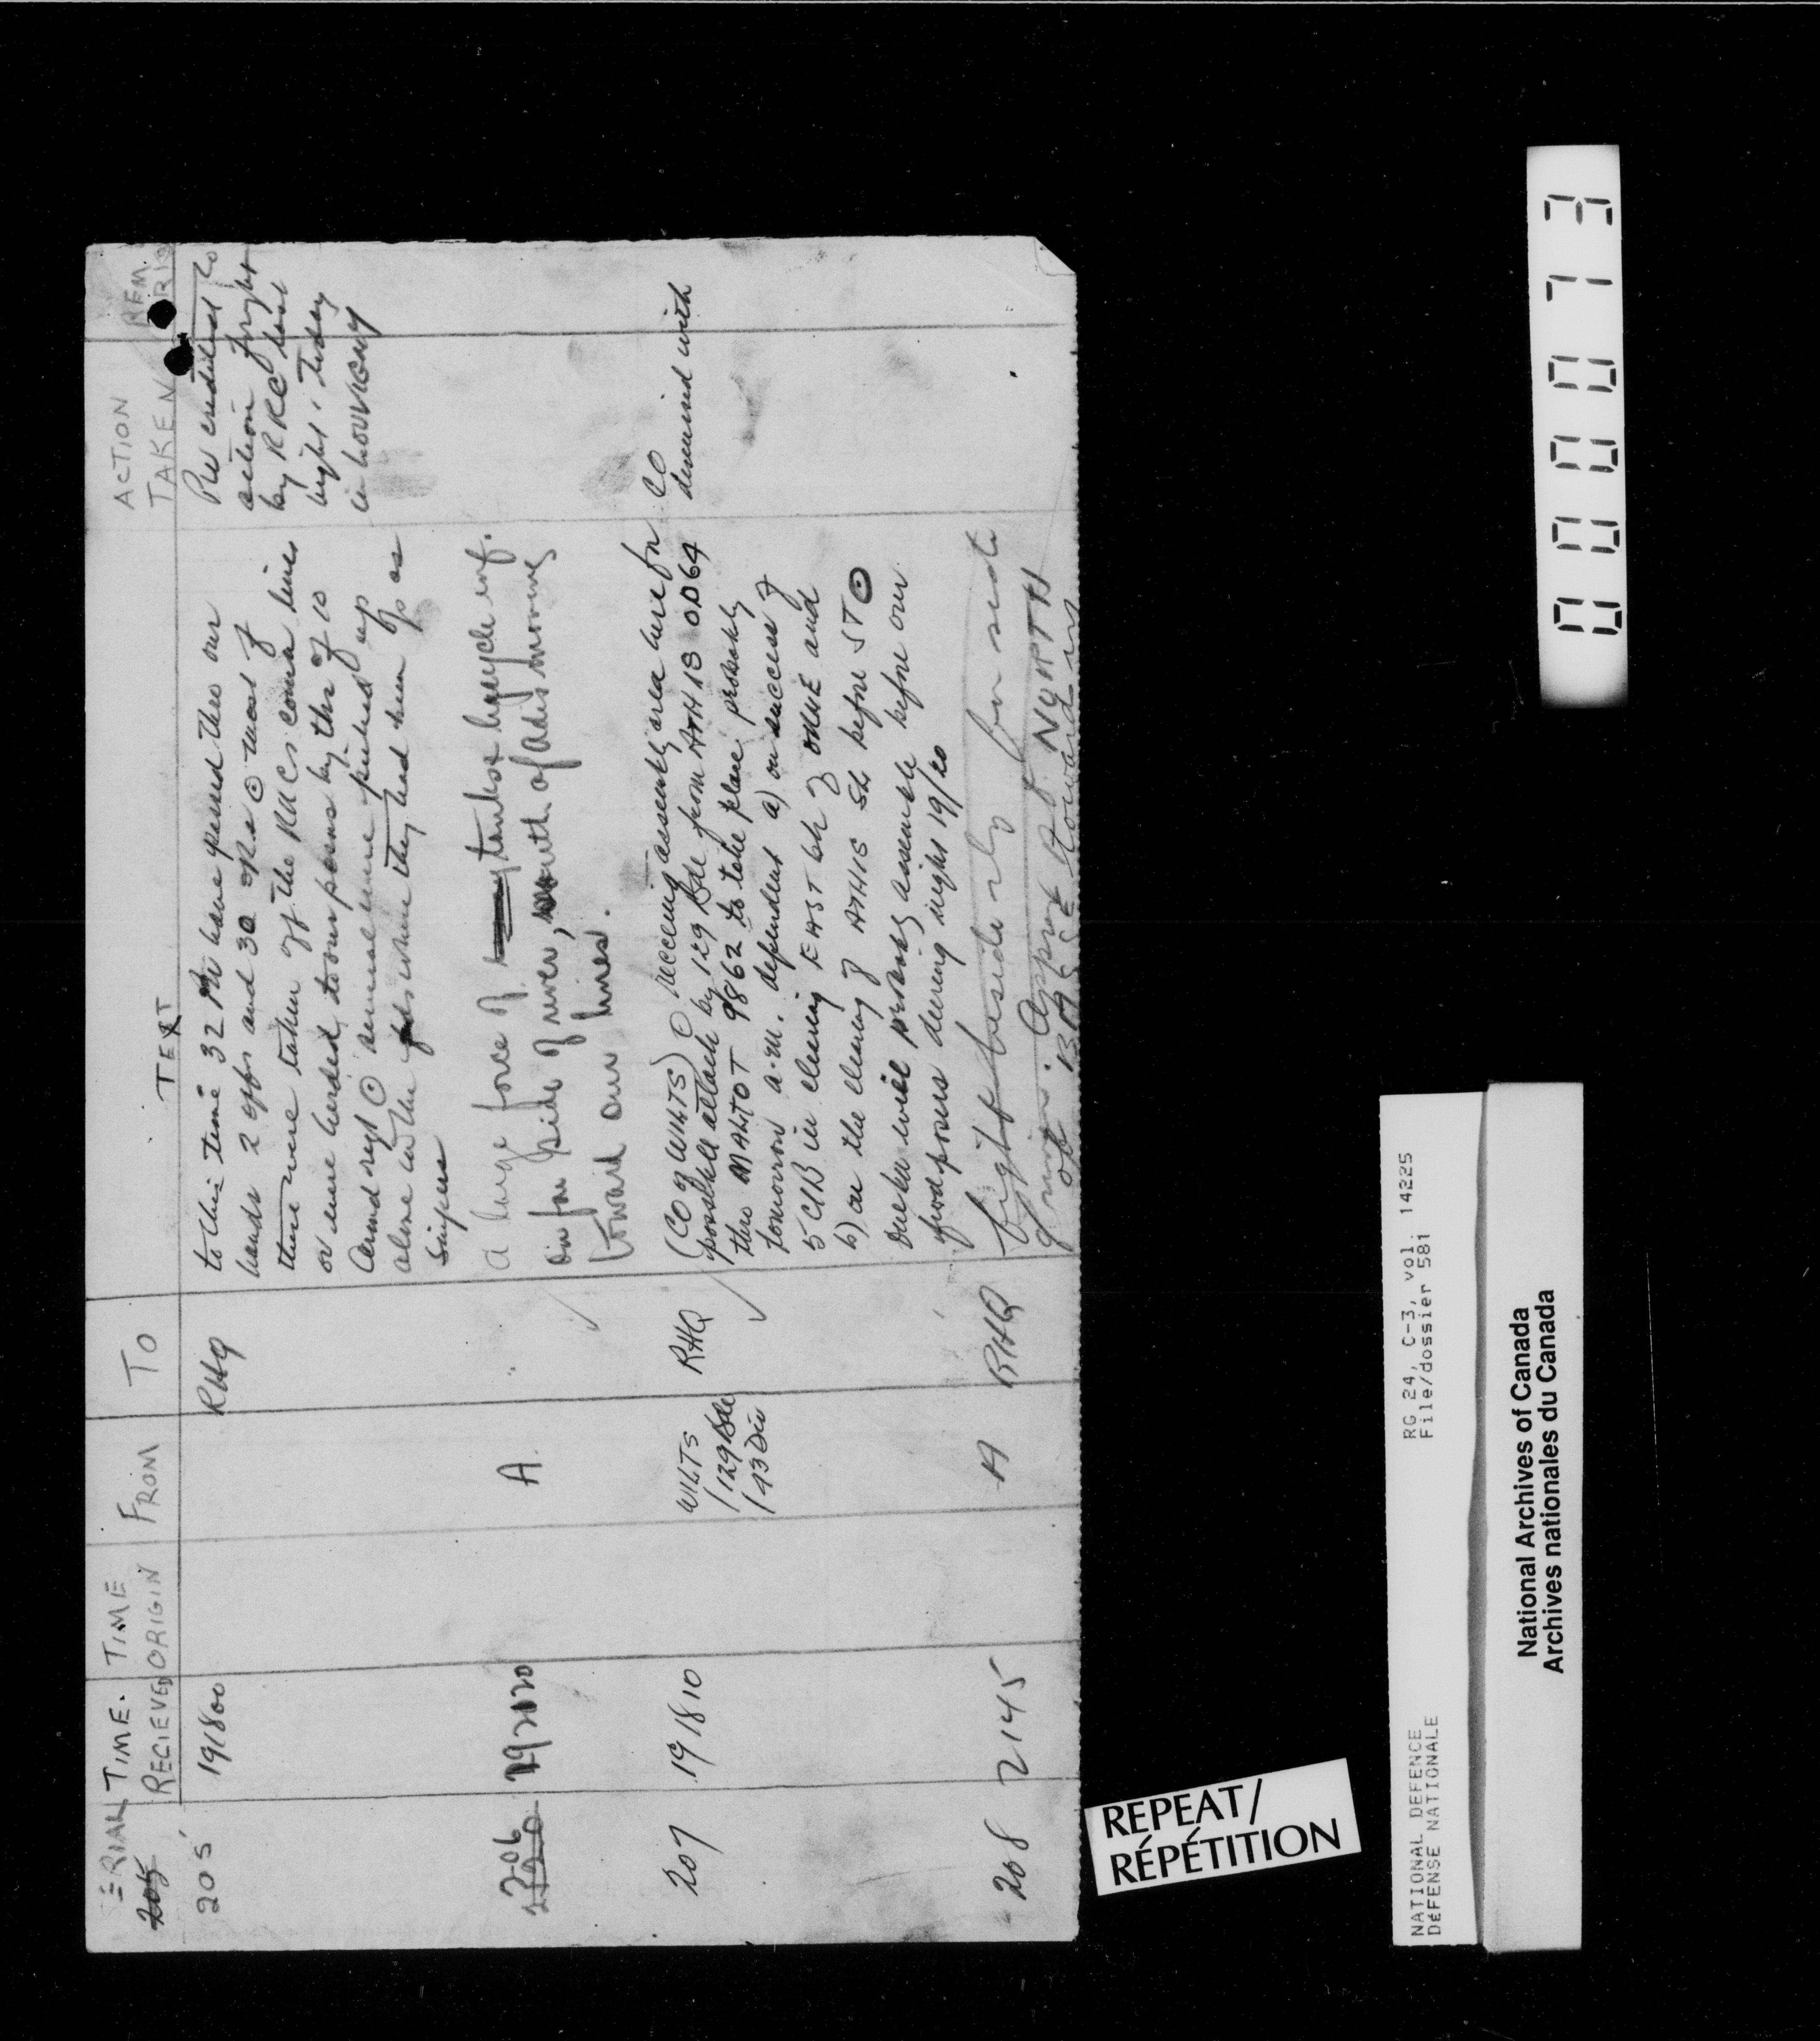 SERIAL TIME. RECIEVED TIME ORIGIN FROM TO TEXT ACTION TAKEN REM
205
205 191800 RHQ
to this time 32 PW have passed thro our
hands 2 offrs and 30 ORs ⊙ most of
these were taken off the RRCs comn lines
or were herded to our posns by tks of 10
Armd regt ⊙ several were picked up
alone in the fds where they had been
snipers
PW credited to
action fought
by RRC last
night, today
in LOUVIGNY
206 192020 A
a large force of tanks & bicycle inf.
on far side of river, south of Adis moving
toward our lines.
207 191810 WILTS (129 Bde (43 Div RHQ
(CO of WILTS) ⊙ recceing assembly area here for
possible attack by 129 Bde from ATHIS 0064
thro MALTOT 9862 to take place probably
tomorrow a.m. dependent a) on success of
5 CIB in clearing EAST bk of ORNE and
b) on the clearing of ATHIS St before ST ⊙
Duck will probably assemble before our
fwd posns during night 19/20
CO
discussed with
208 2145 A RHQ
fight beside rly
NORTH
REPEAT/
RÉPÉTITION
0000073
NATIONAL DEFENCE RG 24, C-3, vol. 14225
DÉFENSE NATIONALE File/dossier 581
National Archives of Canada
Archives nationales du Canada